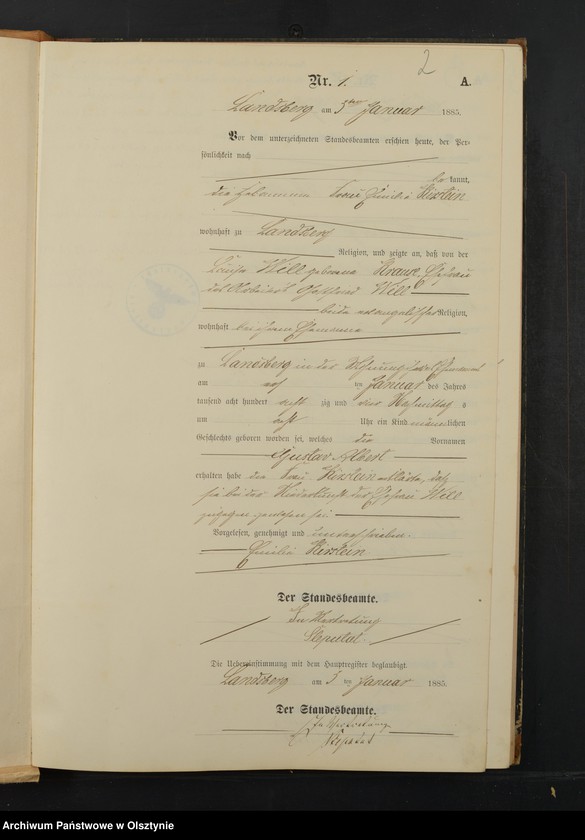 2
Nr. 1. A.
Landsberg am 5ten Januar 1885.
Vor dem unterzeichneten Standesbeamten erschien heute, der Per-
sönlichkeit nach
be kannt,
die Hebamme Frau Emilie Kirstein
wohnhaft zu Landsberg
Religion, und zeigte an, daß von der
Louise Will geborene Krause, Ehefrau
des Arbeiters Will
beide evangelischer Religion,
wohnhaft bei ihrem Ehemanne
zu Landsberg in der Wohnung ihres Ehemannes
am ten Januar des Jahres
tausend acht hundert zig und vier Nachmittag s
um acht Uhr ein Kind männlichen
Geschlechts geboren worden sei, welches die Vornamen
Gustav Albert
erhalten habe die Frau Kirstein erklärte, daß
sie bei der Niederkunft der Ehefrau Will
zugegen gewesen sei.
Vorgelesen, genehmigt und unterschrieben.
Emilie Kirstein
Der Standesbeamte.
In Vertretung
Die Uebereinstimmung mit dem Hauptregister beglaubigt.
Landsberg am 5 ten Januar 1885.
Der Standesbeamte.
In Vertretung
Archiwum Państwowe w Olsztynie